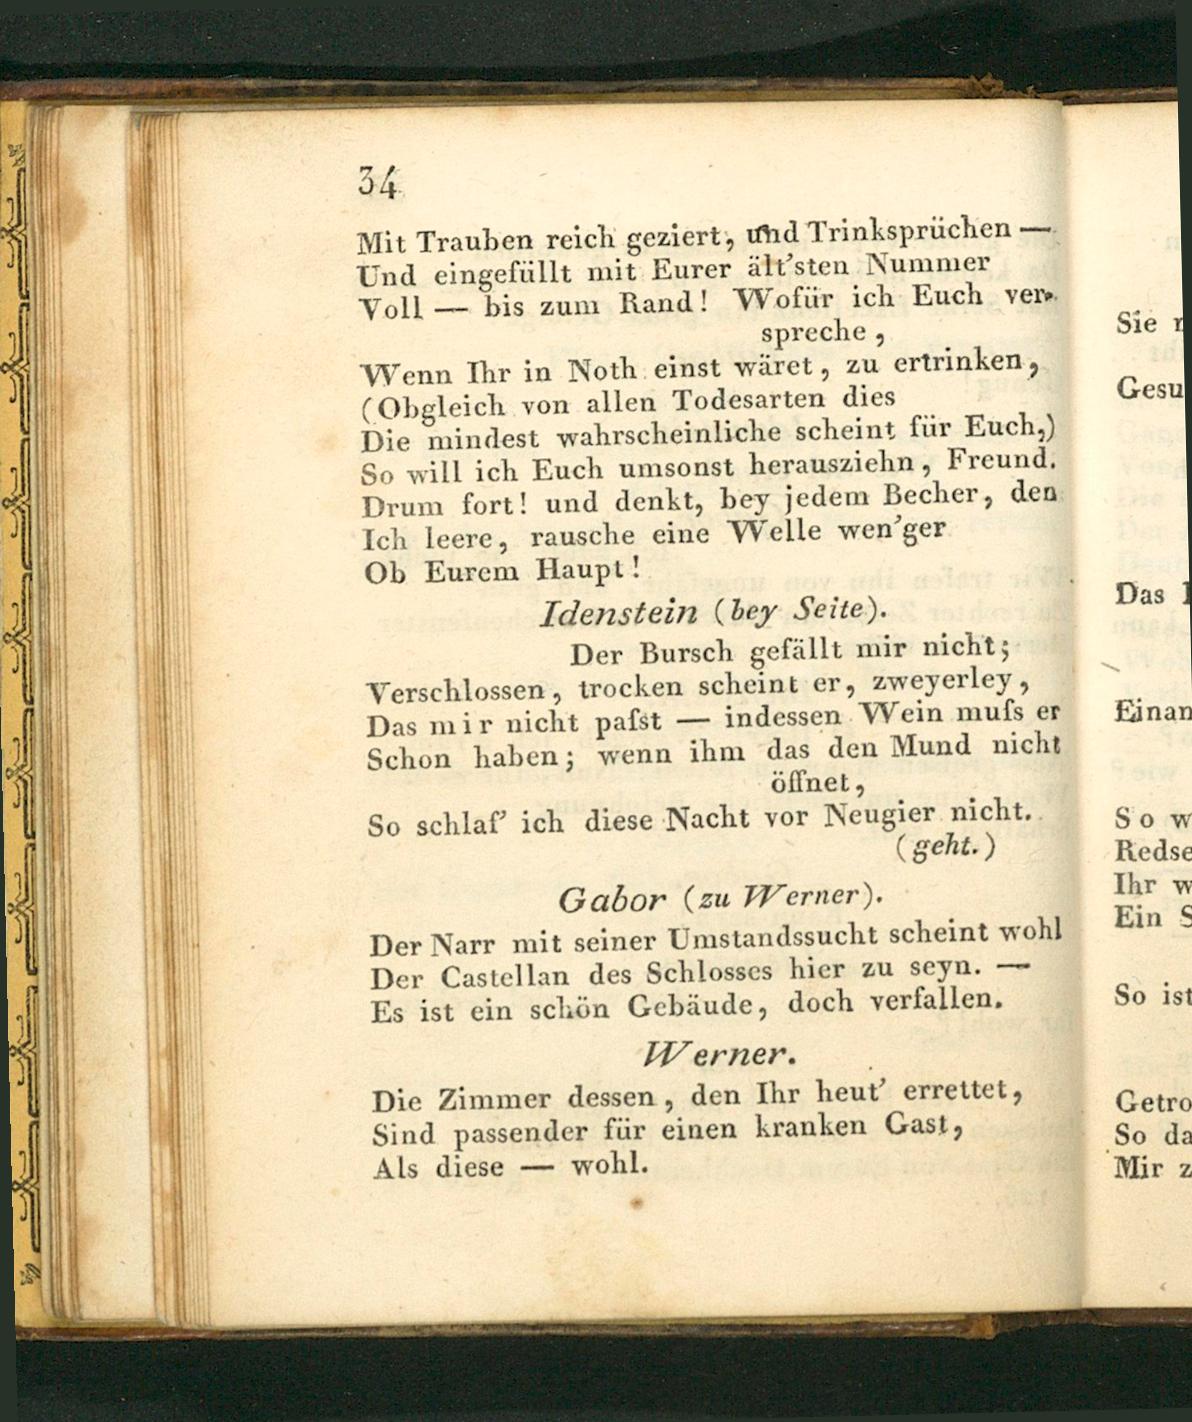 34
Mit Trauben reich geziert, und Trinksprüchen —
Und eingefüllt mit Eurer ält'sten Nummer
Voll — bis zum Rand! Wofür ich Euch ver-
spreche,
Wenn Ihr in Noth einst wäret, zu ertrinken,
(Obgleich von allen Todesarten dies
Die mindest wahrscheinliche scheint für Euch,)
So will ich Euch umsonst herausziehn, Freund.
Drum fort! und denkt, bey jedem Becher, den
Ich leere, rausche eine Welle wen'ger
Ob Eurem Haupt!
Idenstein (bey Seite).
Der Bursch gefällt mir nicht;
Verschlossen, trocken scheint er, zweyerley,
Das mir nicht paſst — indessen Wein muſs er
Schon haben; wenn ihm das den Mund nicht
öffnet,
So schlaf' ich diese Nacht vor Neugier nicht.
(geht.)
Gabor (zu Werner).
Der Narr mit seiner Umstandssucht scheint wohl
Der Castellan des Schlosses hier zu seyn. —
Es ist ein schön Gebäude, doch verfallen.
Werner.
Die Zimmer dessen, den Ihr heut' errettet,
Sind passender für einen kranken Gast,
Als diese — wohl.
Sie
Gesu
Das
Einan
So w
Redse
Ihr w
Ein S
So ist
Getro
So da
Mir z